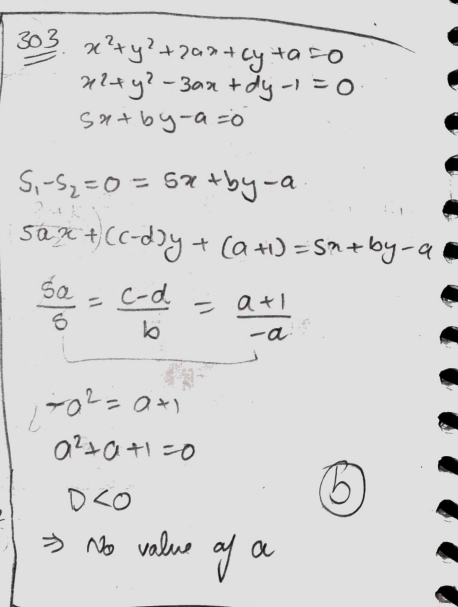 303 x²+y²+2ax+cy+a=0
x²+y²-3ax+dy-1=0
5x+by-a=0
S₁-S₂=0 = 5x+by-a
5ax+(c-d)y+(a+1)=5x+by-a
5a/5 = c-d/b = a+1/-a
-a²=a+1
a²+a+1=0
D<0
(b)
⇒ No value of a